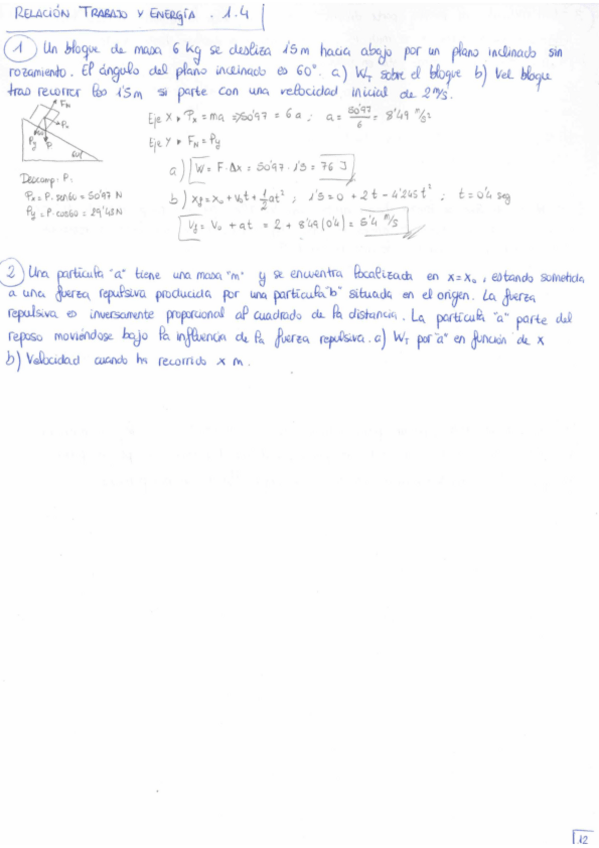 RELACIÓN TRABAJO Y ENERGÍA . 1.4
① Un bloque de masa 6 kg se desliza 1'5m hacia abajo por un plano inclinado sin
rozamiento. El ángulo del plano inclinado es 60°. a) W_T sobre el bloque b) Vel bloque
tras recorrer los 1'5m si parte con una velocidad inicial de 2 m/s.
F_N
P_x
P_y
P
60°
60°
Eje X ▸ P_x = ma => 50'97 = 6a ; a = 50'97/6 = 8'49 m/s²
Eje Y ▸ F_N = P_y
Descomp. P:
P_x = P· sen60 = 50'97 N
P_y = P· cos60 = 29'43N
a) W = F·Δx = 50'97 · 1'5 = 76 J
b) x_f = x_0 + v_0t + 1/2 at² ; 1'5 = 0 + 2t - 4'245t² ; t = 0'4 seg
V_f = V_0 + at = 2 + 8'49 (0'4) = 5'4 m/s
② Una partícula "a" tiene una masa "m" y se encuentra localizada en x = x_0 , estando sometida
a una fuerza repulsiva producida por una partícula "b" situada en el origen. La fuerza
repulsiva es inversamente proporcional al cuadrado de la distancia. La partícula "a" parte del
reposo moviéndose bajo la influencia de la fuerza repulsiva. a) W_T por "a" en función de x
b) Velocidad cuando ha recorrido x m.
12